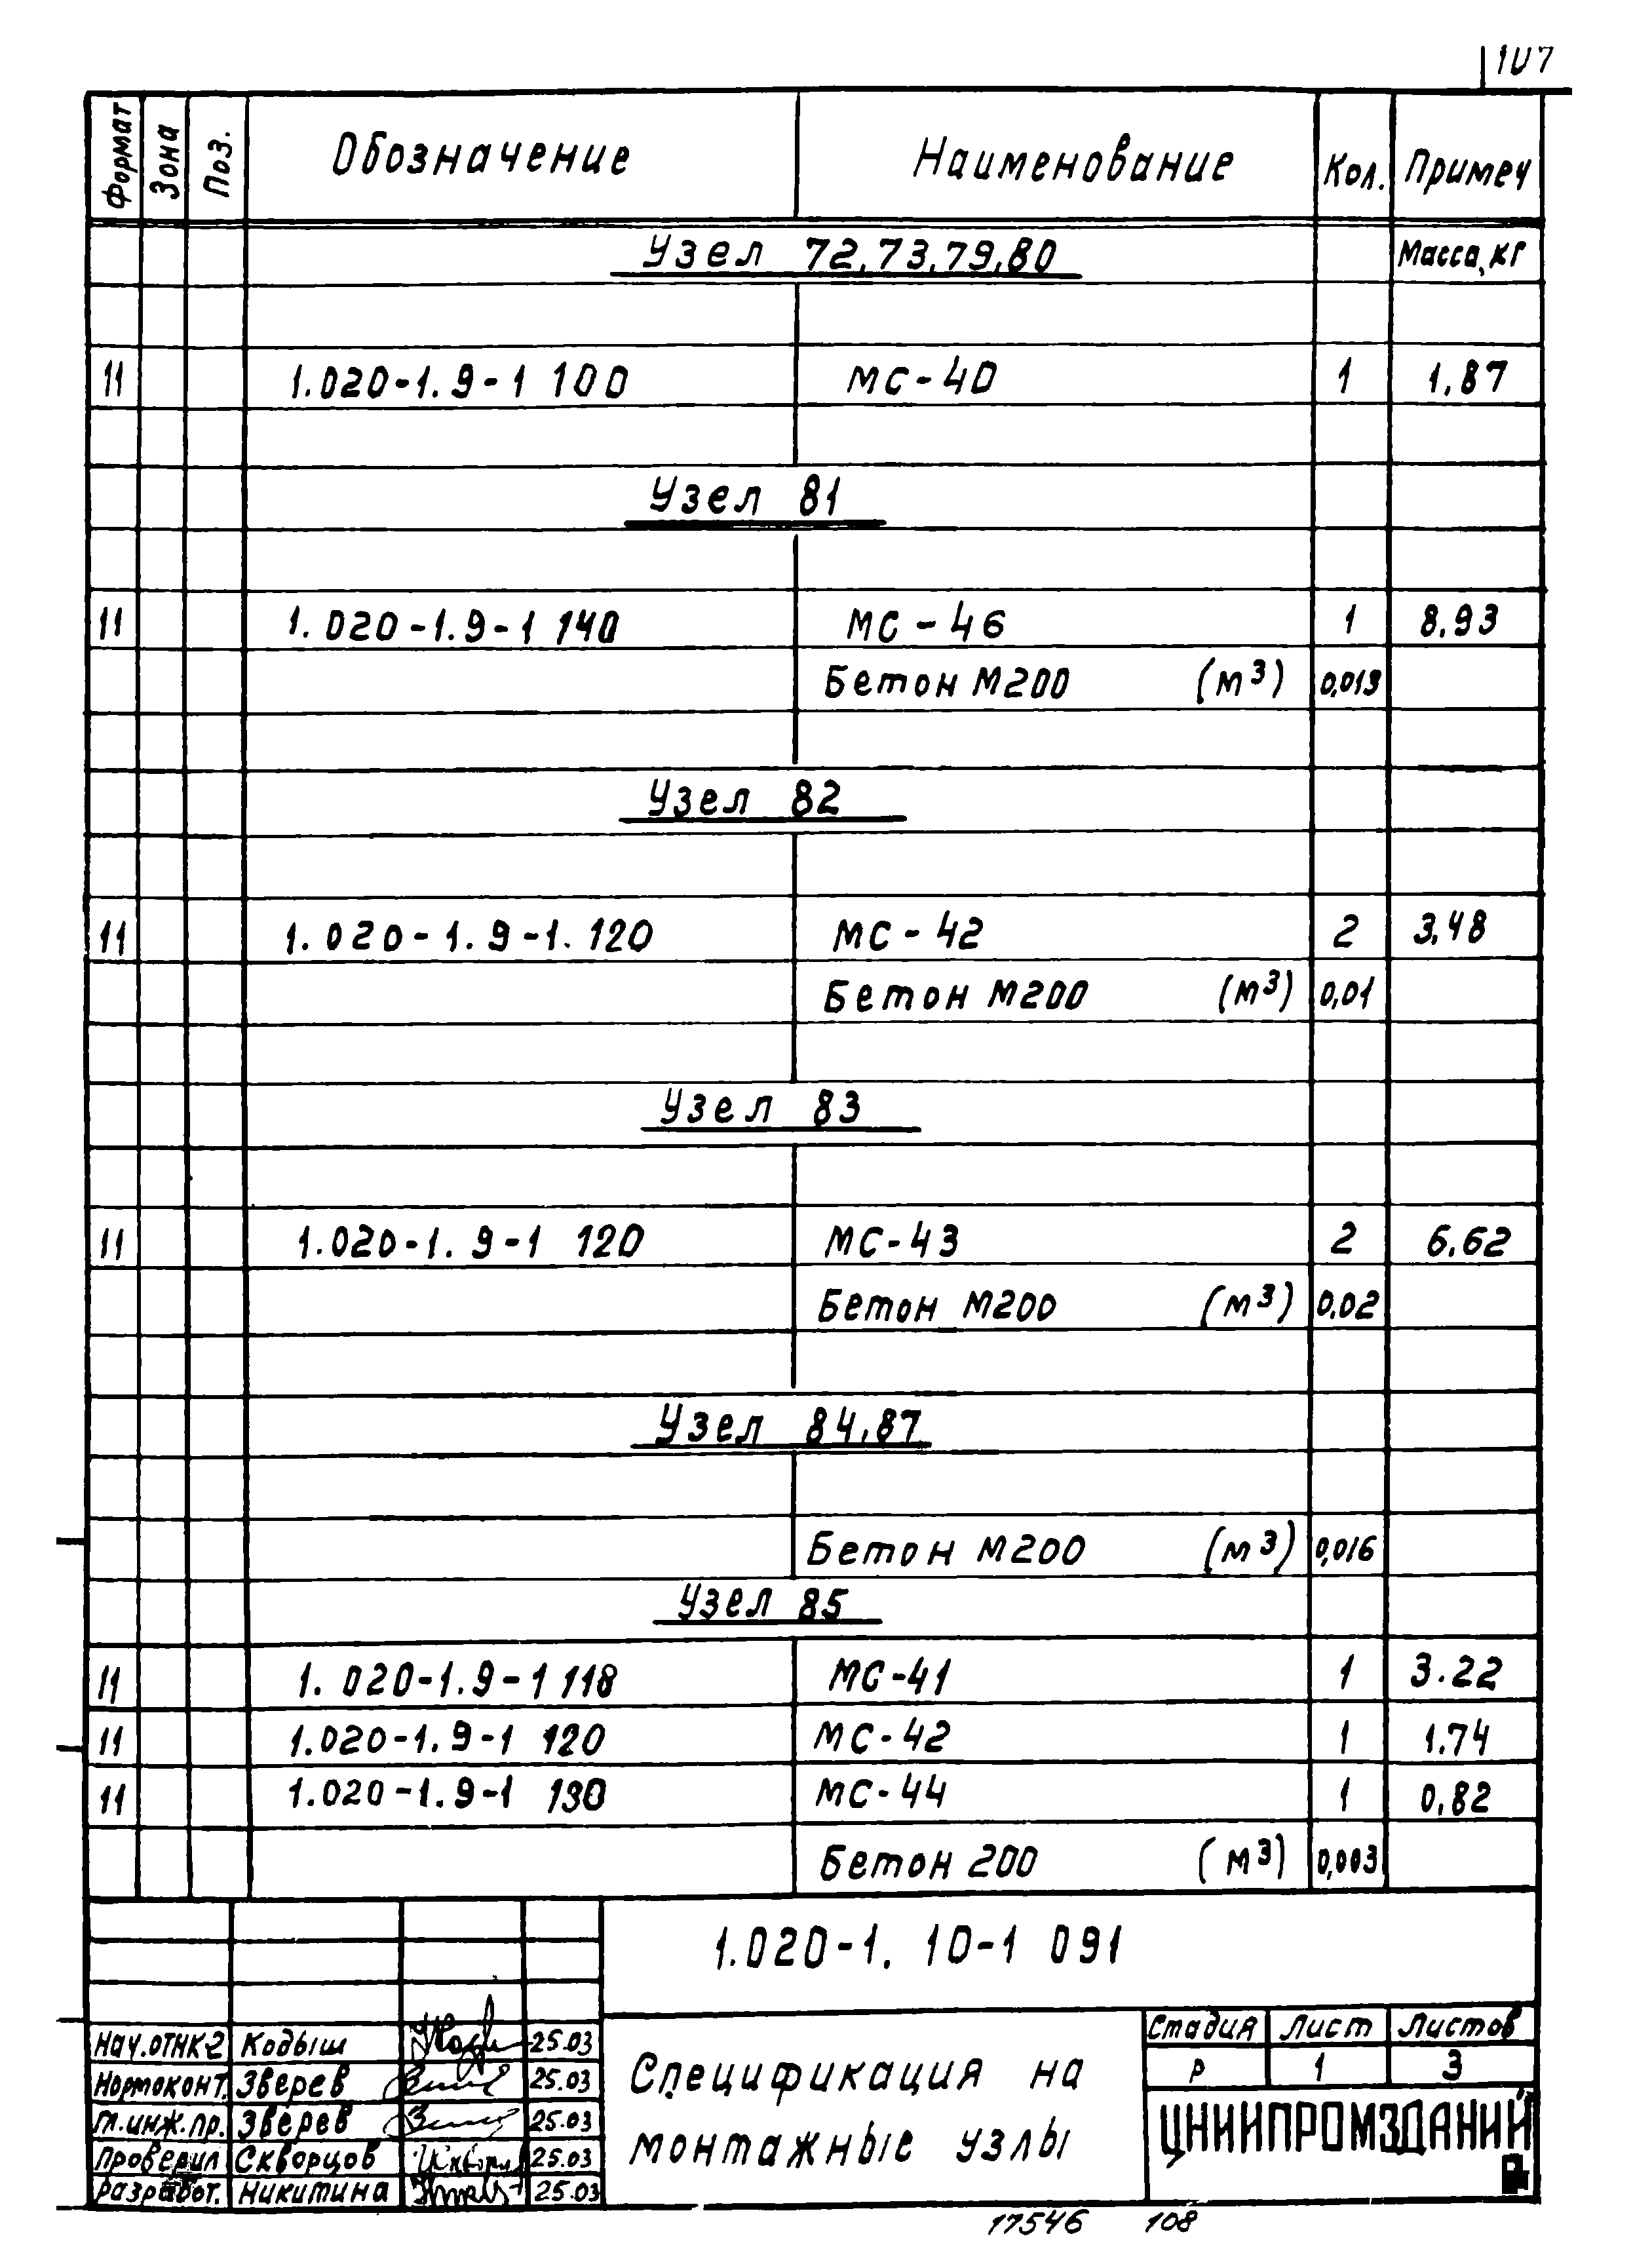 107
Формат Зона Поз. Обозначение Наименование Кол. Примеч
Узел 72,73,79,80 Масса, кг
11 1.020-1.9-1 100 МС-40 1 1,87
Узел 81
11 1.020-1.9-1 140 МС-46 1 8,93
Бетон М200 (м³) 0,013
Узел 82
11 1.020-1.9-1.120 МС-42 2 3,48
Бетон М200 (м³) 0,01
Узел 83
11 1.020-1.9-1 120 МС-43 2 6.62
Бетон М200 (м³) 0,02
Узел 84,87
Бетон М200 (м³) 0,016
Узел 85
11 1.020-1.9-1 118 МС-41 1 3.22
11 1.020-1.9-1 120 МС-42 1 1.74
11 1.020-1.9-1 130 МС-44 1 0,82
Бетон 200 (м³) 0,003
1.020-1.10-1 091
Нач.ОТНК-2 Кодыш 25.03
Нормоконт. Зверев 25.03
Гл.инж.пр. Зверев 25.03
Проверил Скворцов 25.03
Разработ. Никитина 25.03
Спецификация на
монтажные узлы
Стадия Лист Листов
Р 1 3
ЦНИИПРОМЗДАНИЙ
17546 108